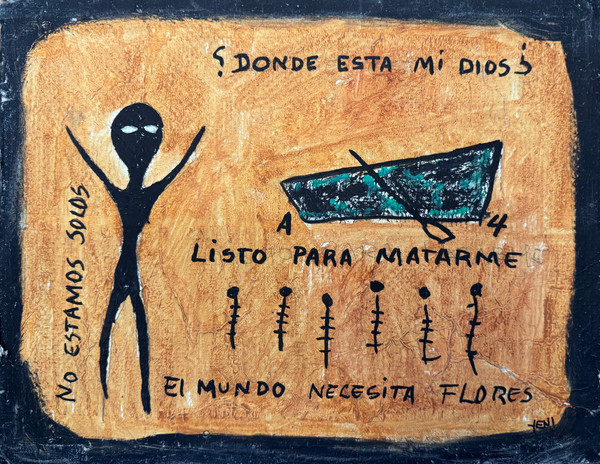 ¿DONDE ESTA MI DIOS?
NO ESTAMOS SOLOS
A 4
LISTO PARA MATARME
El MUNDO NECESITA FLORES
YENI